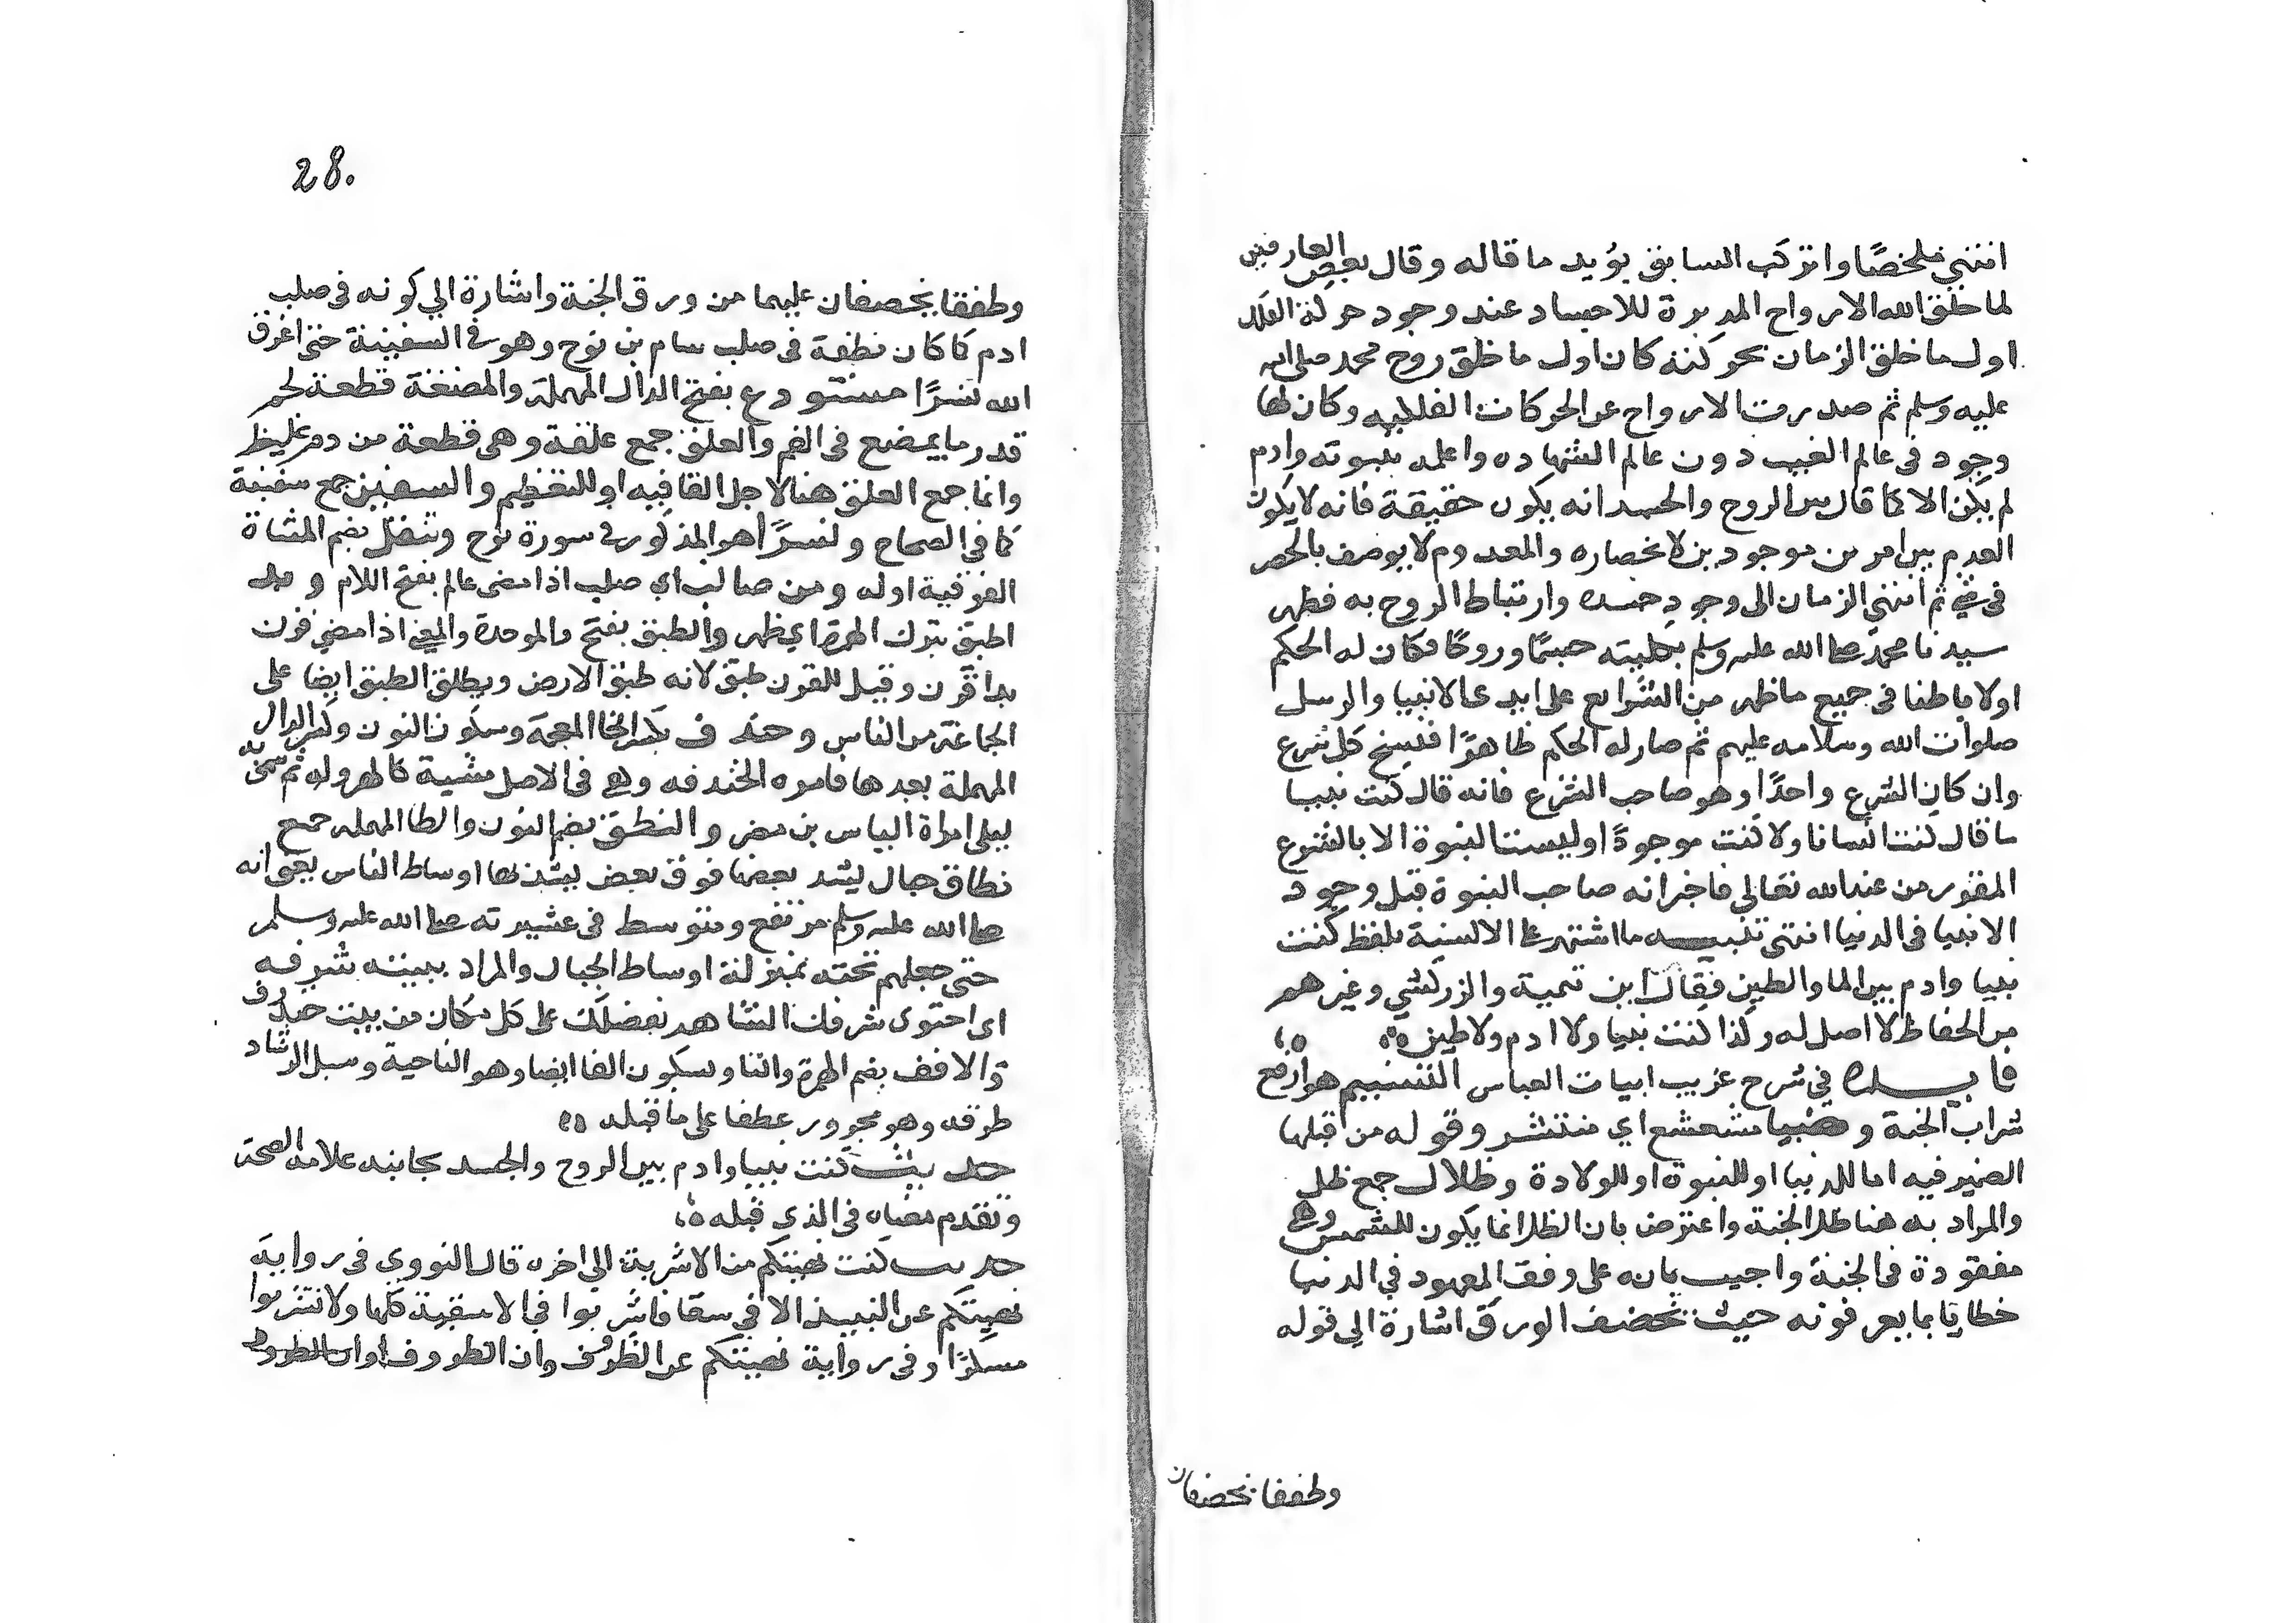 انتهي ملخصًا وانزكب السابق يؤيد ما قاله وقال بعض العارفين
لما خلق الله الارواح المدبرة للاجساد عند وجود حركة الفلك
اول ما خلق الزمان بحركته كان اول ما خلق روح محمد صلى الله
عليه وسلم ثم صدرت الارواح عن الحركات الفلكيه وكان لها
وجود في عالم الغيب دون عالم الشهاده واعلمه بنبوته وادم
لم يكن الا كما قال بين الروح والجسد انه يكون حقيقة فانه لا يكون
العدم بين امرين موجودين لانحصاره والمعدوم لا يوصف بالحصر
في شي ثم انتهي الزمان الى وجود جسده وارتباط الروح به فظهر
سيدنا محمد صلى الله عليه وسلم بكليته جسمًا وروحًا فكان له الحكم
اولا باطنا في جميع ما ظهر من الشرايع على ايدي الانبيا والرسل
صلوات الله وسلامه عليهم ثم صار له الحكم ظاهرًا فنسخ كل شرع
وان كان الشرع واحدًا وهو صاحب الشرع فانه قال كنت نبيا
ما قال كنت انسانا ولا كنت موجودًا وليست النبوة الا بالشرع
المقرر من عند الله تعالى فاخبر انه صاحب النبوة قبل وجود
الانبيا في الدنيا انتهى تنبيه ما اشتهر على الالسنية بلفظ كنت
نبيا وادم بين الما والطين فقال ابن تيمية والزركشي وغيرهم
من الحفاظ لا اصل له وكذا كنت نبيا ولا ادم ولا طين
فايده في شرح غريب ابيات العباس التسنيم هو ارفع
شراب الجنة و مشعشع اي منتشر وقوله من قبلها
الضمير فيه اما للدنيا او للنبوة او للولادة وظلال جمع ظل
والمراد به هنا ظل الجنة واعترض بان الظل انما يكون للشمس وهي
مفقودة في الجنة واجيب بانه على وفق المعهود في الدنيا
خطابا بما يعرفونه حيث تخصف الورق اشارة الي قوله
وطفقا يخصفان
28.
وطفقا يخصفان عليهما من ورق الجنة واشارة الي كونه في صلب
ادم كما كان نطفة في صلب سام بن نوح وهو في السفينة حتى اغرق
الله نسرًا مستودع بفتح الدال المهملة والمضغة قطعة لحم
قدر ما يمضغ في الفم والعلق جمع علقة وهي قطعة من دم غليظ
وانما جمع العلق هنا لاجل القافيه او للتعظيم والسفين جمع سفينة
كما في الصحاح ونسرًا هو المذكور في سورة نوح وتنقل بضم المثناة
الفوقية اوله ومن صالب اي صلب اذا مضى عالم بفتح اللام وبد
اطبق بترك الهمزة اي ظهر والطبق بفتح والموحدة والمعني اذا مضي قرن
بدا قرن وقيل للقرن طبق لانه طبق الارض ويطلق الطبق ايضا على
الجماعة من الناس وخندف بكسر الخا المعجمة وسكون النون وكسر الدال
المهملة بعدها فا من الخندفه وهي في الاصل مشية كالهروله ثم سمي به
ليلى امراة الياس بن مضر والنطق بضم النون والطا المهمله جمع
نطاق جبال يشد بعضها فوق بعض يشد بها اوساط الناس يعني انه
صلى الله عليه وسلم مرتفع ومتوسط في عشيرته صلى الله عليه وسلم
حتى جعلهم تحته بمنزلة اوساط الجبال والمراد ببيته شرفه
اى احتوى شرفك الشاهد بفضلك على كل مكان من بيت خندف
والافق بضم الهمزة وسكون الفا ايضا وهو الناحية وسبل الرشاد
طرقه وهو مجرور عطفا على ما قبله
حديث كنت نبيا وادم بين الروح والجسد بجانبه علامة الصحة
وتقدم معناه في الذي قبله
حديث كنت نهيتكم من الاشربة الى اخره قال النووى في رواية
نهيتكم عن النبيذ الا في سقا فاشربوا في الاسقية كلها ولا تشربوا
مسكرًا وفي رواية نهيتكم عن الظروف وان الظروف